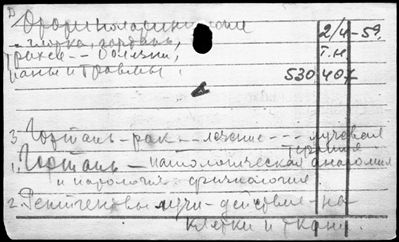 2/4-59.
глотка, гортань,
трахея - болезни, Т.Н.
раны и травмы. 530 40
3. Гортань - рак - лечение - - - лучевая
терапия
1. Гортань - патологическая анатомия
и патология физиология
2. Рентгеновы лучи - действие - на
клетки и ткани.